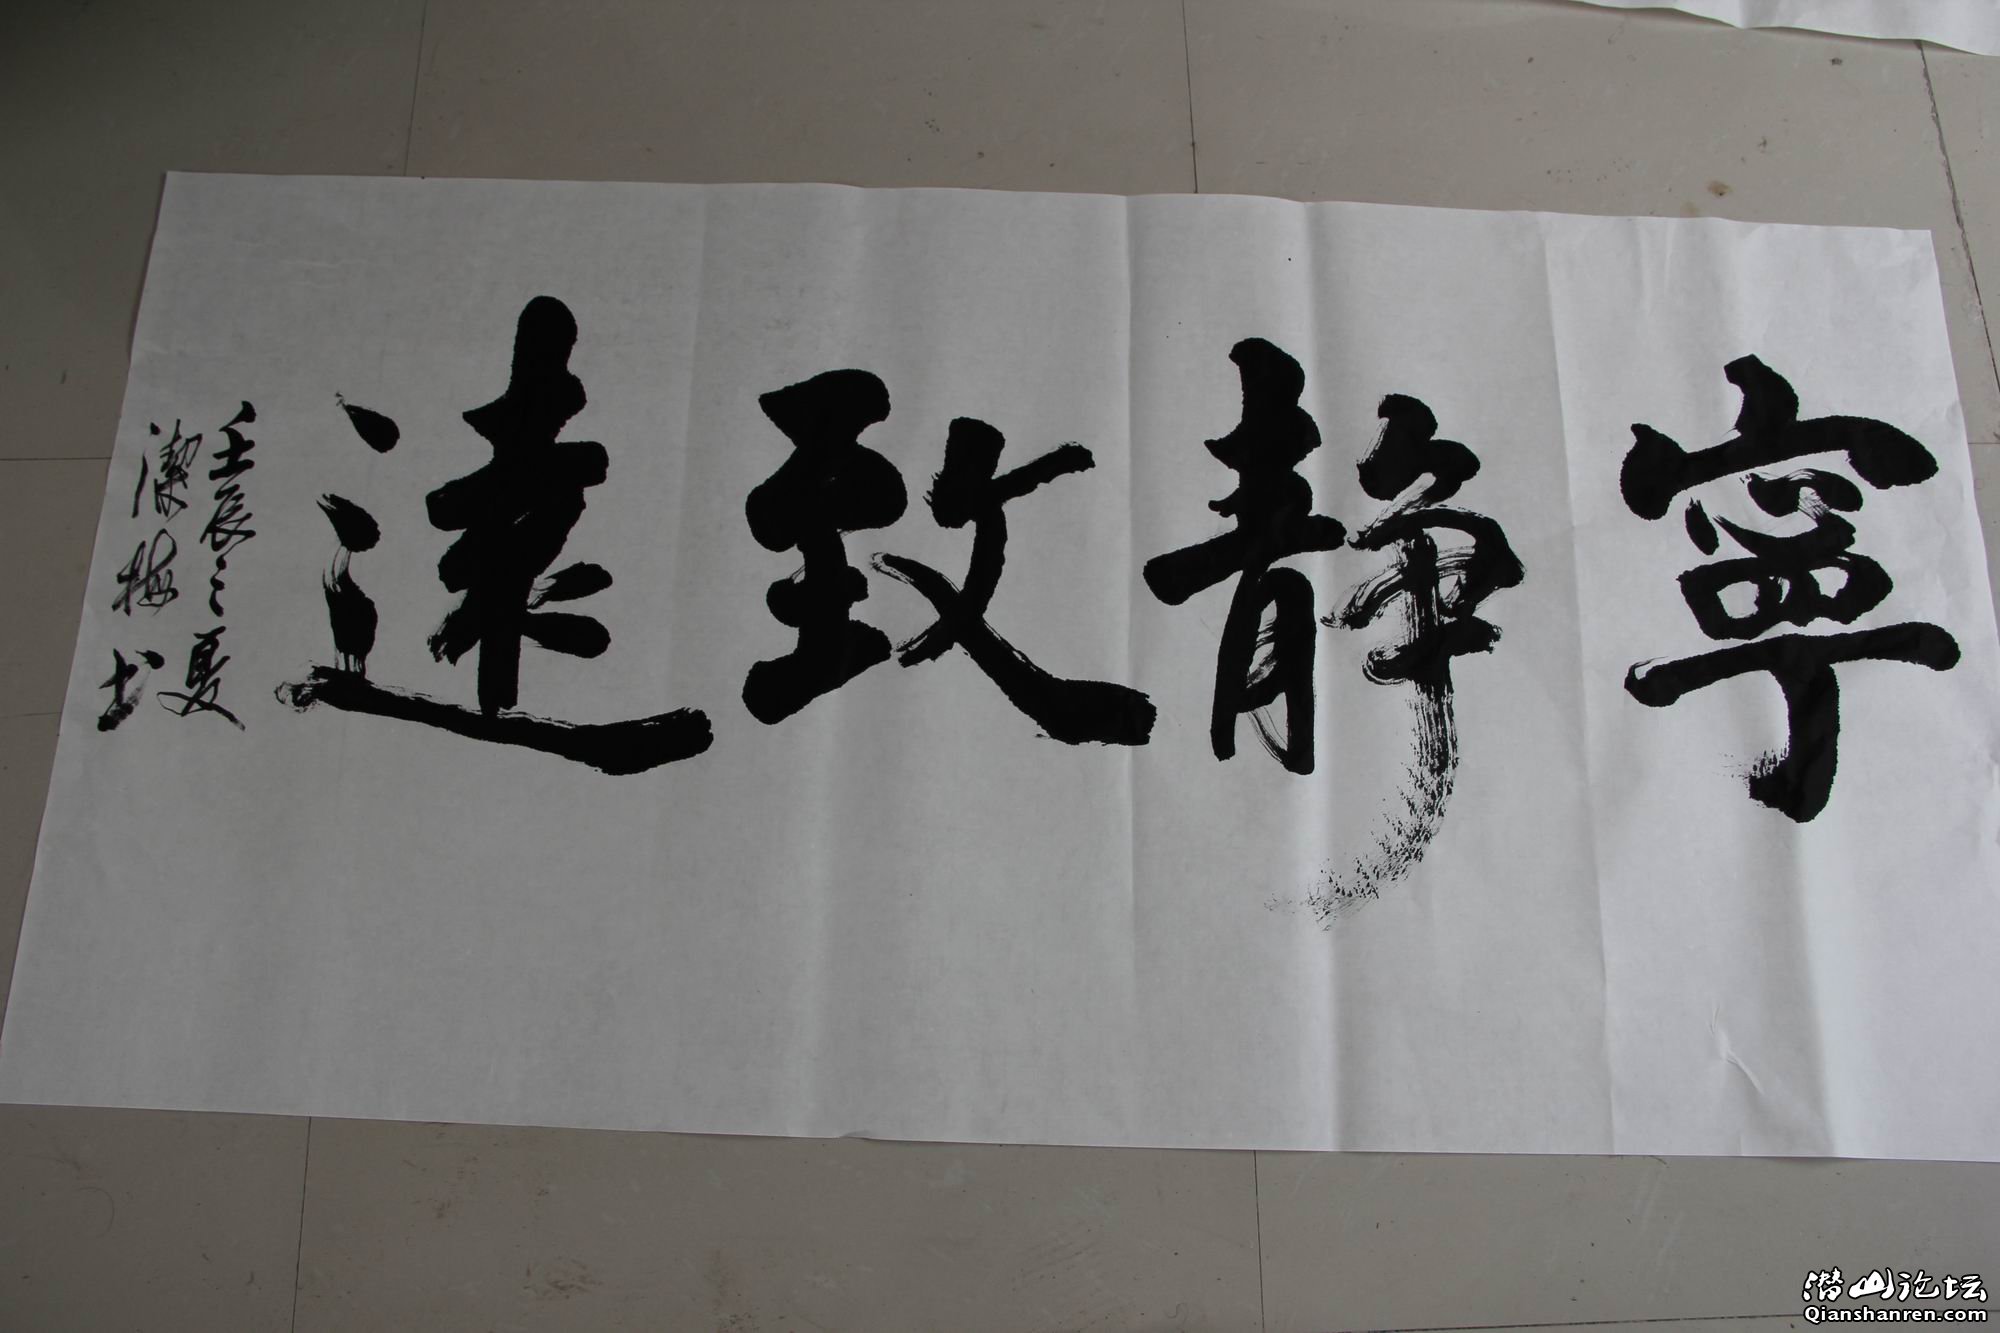 寧静致遠
壬辰之夏
潔梅书
潜山论坛
Qianshanren.com